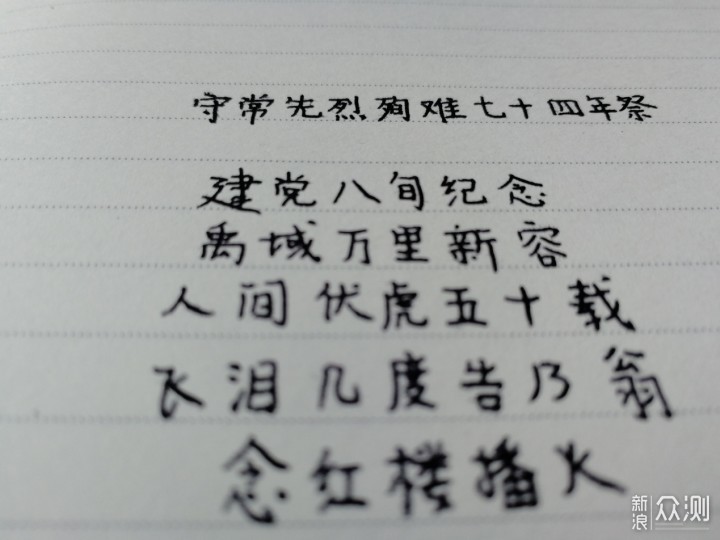 守常先烈殉难七十四年祭
建党八旬纪念
禹域万里新容
人间伏虎五十载
飞泪几度告乃翁
念红楼播火
新浪众测